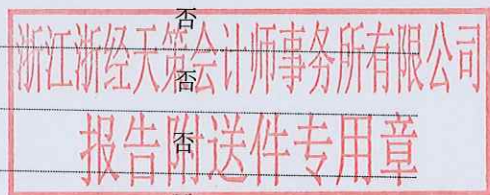 否
浙江浙经天策会计师事务所有限公司
否
报告附送件专用章
否